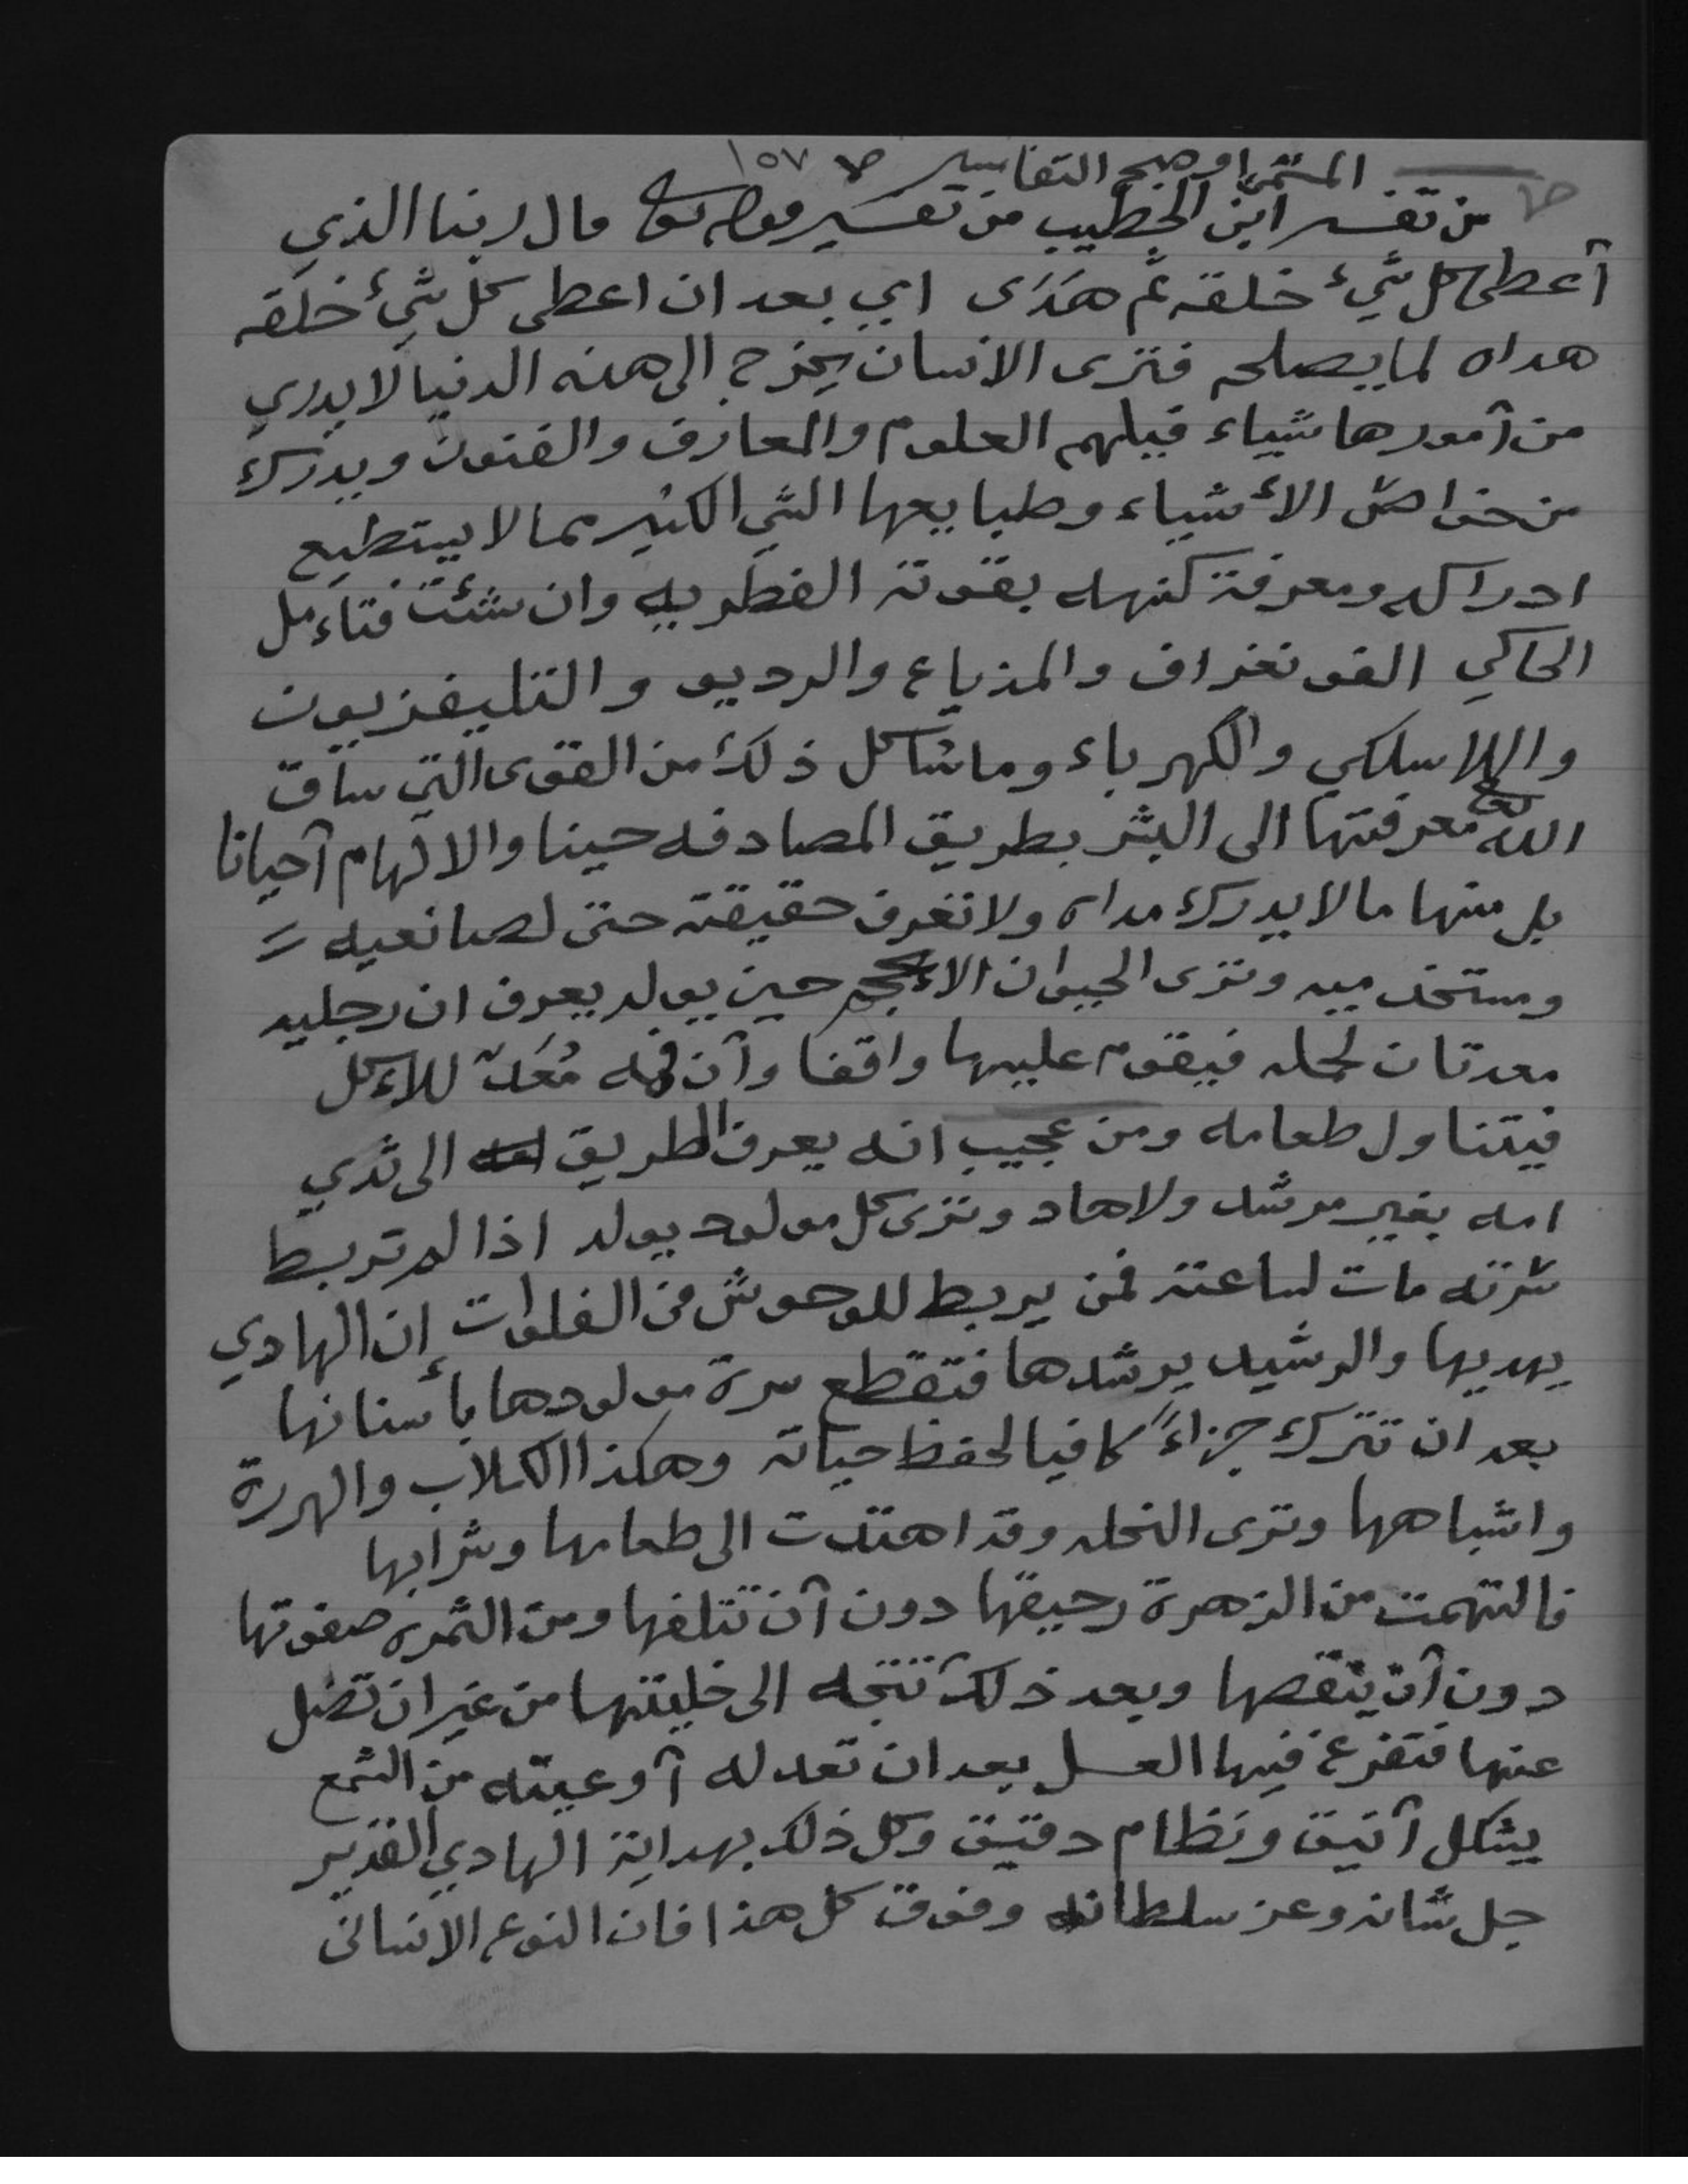 المسمى اوضح التفاسير ص ١٥٧
من تفسير ابن الخطيب من تفسير قوله تعالى قال ربنا الذي
أعطى كل شيء خلقه ثم هَدَى اي بعد ان اعطى كل شيء خلقه
هداه لما يصلحه فترى الانسان يخرج الى هذه الدنيا لا يدري
من أمورها شياء فيلهم العلوم والمعارف والفنون ويدرك
من خواص الأشياء وطبايعها الشي الكثير مما لا يستطيع
ادراكه ومعرفة كنهه بقوته الفطريه وان شئت فتاءمل
الحاكي الفونغراف والمذياع والرديو والتليفزيون
واللاسلكي والكهرباء وما شاكل ذلك من القوى التي ساق
الله تعالى معرفتها الى البشر بطريق المصادفه حينا والالهام أحيانا
بل منها ما لا يدرك مداه ولا تعرف حقيقته حتى لصانعيه
ومستخدميه وترى الحيوان الاءعجم حين يولد يعرف ان رجليه
معدتان لحمله فيقوم عليها واقفا وأن فمه مُعَدّ للاءكل
فيتناول طعامه ومن عجيب انه يعرف الطريق الى ثدي
امه بغير مرشد ولا هاد وترى كل مولود يولد اذا لم تربط
سرته مات لساعته فمن يربط للوحوش في الفلوات إن الهادي
يهديها والرشيد يرشدها فتقطع سرة مولودها بأسنانها
بعد ان تترك جزاءً كافيا لحفظ حياته وهكذا الكلاب والهررة
واشباهها وترى النحله وقد اهتدت الى طعامها وشرابها
فالتهمت من الزهرة رحيقها دون أن تتلفها ومن الثمره صفوتها
دون أن ينقصها وبعد ذلك تتجه الى خليتها من غير ان تضل
عنها فتفرغ فيها العسل بعد ان تعد له أوعيته من الشمع
بشكل أنيق ونظام دقيق وكل ذلك بهداية الهادي القدير
جل شانه وعز سلطانه وفوق كل هذا فان النوع الانسانى